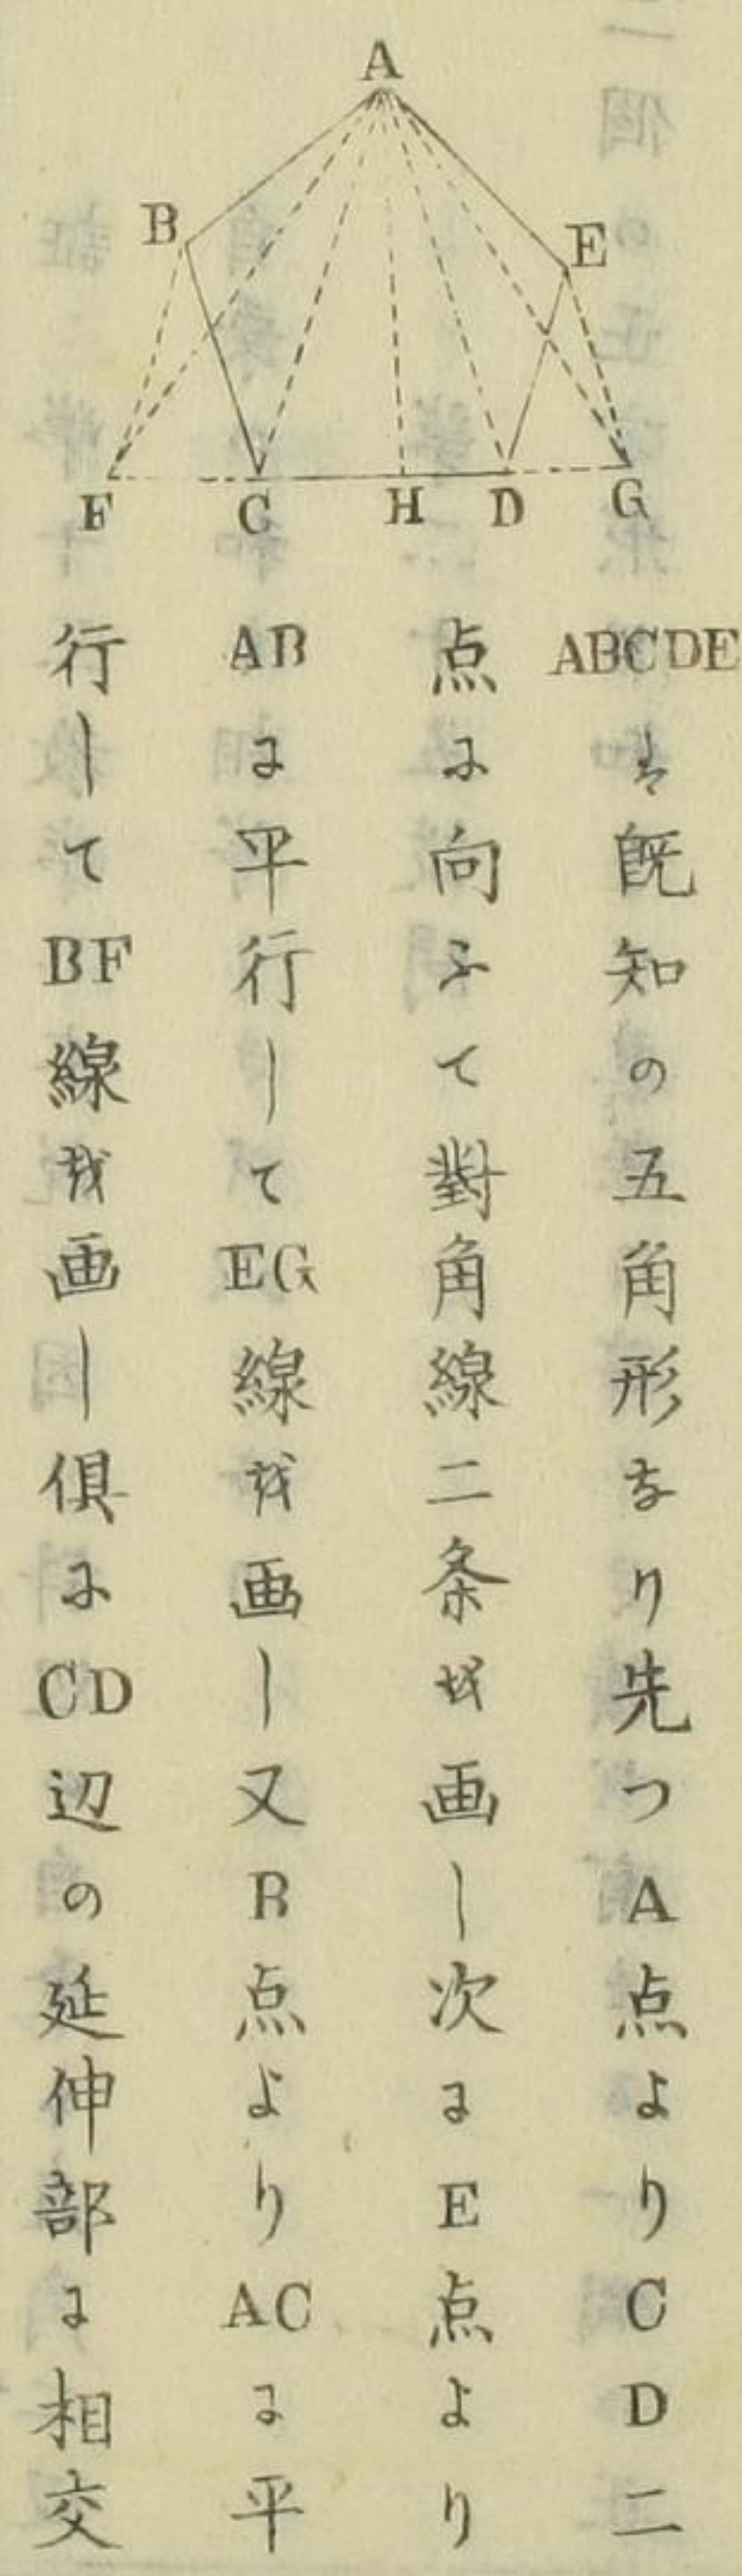 A
B
E
F
C
H
D
G
ABCDEハ既知の五角形なり先つA点よりCD二
点に向ふて對角線二条を画し次にE点より
ABに平行して EG線を画し又B点より ACに平
行して BF線を画し倶にCD辺の延伸部に相交